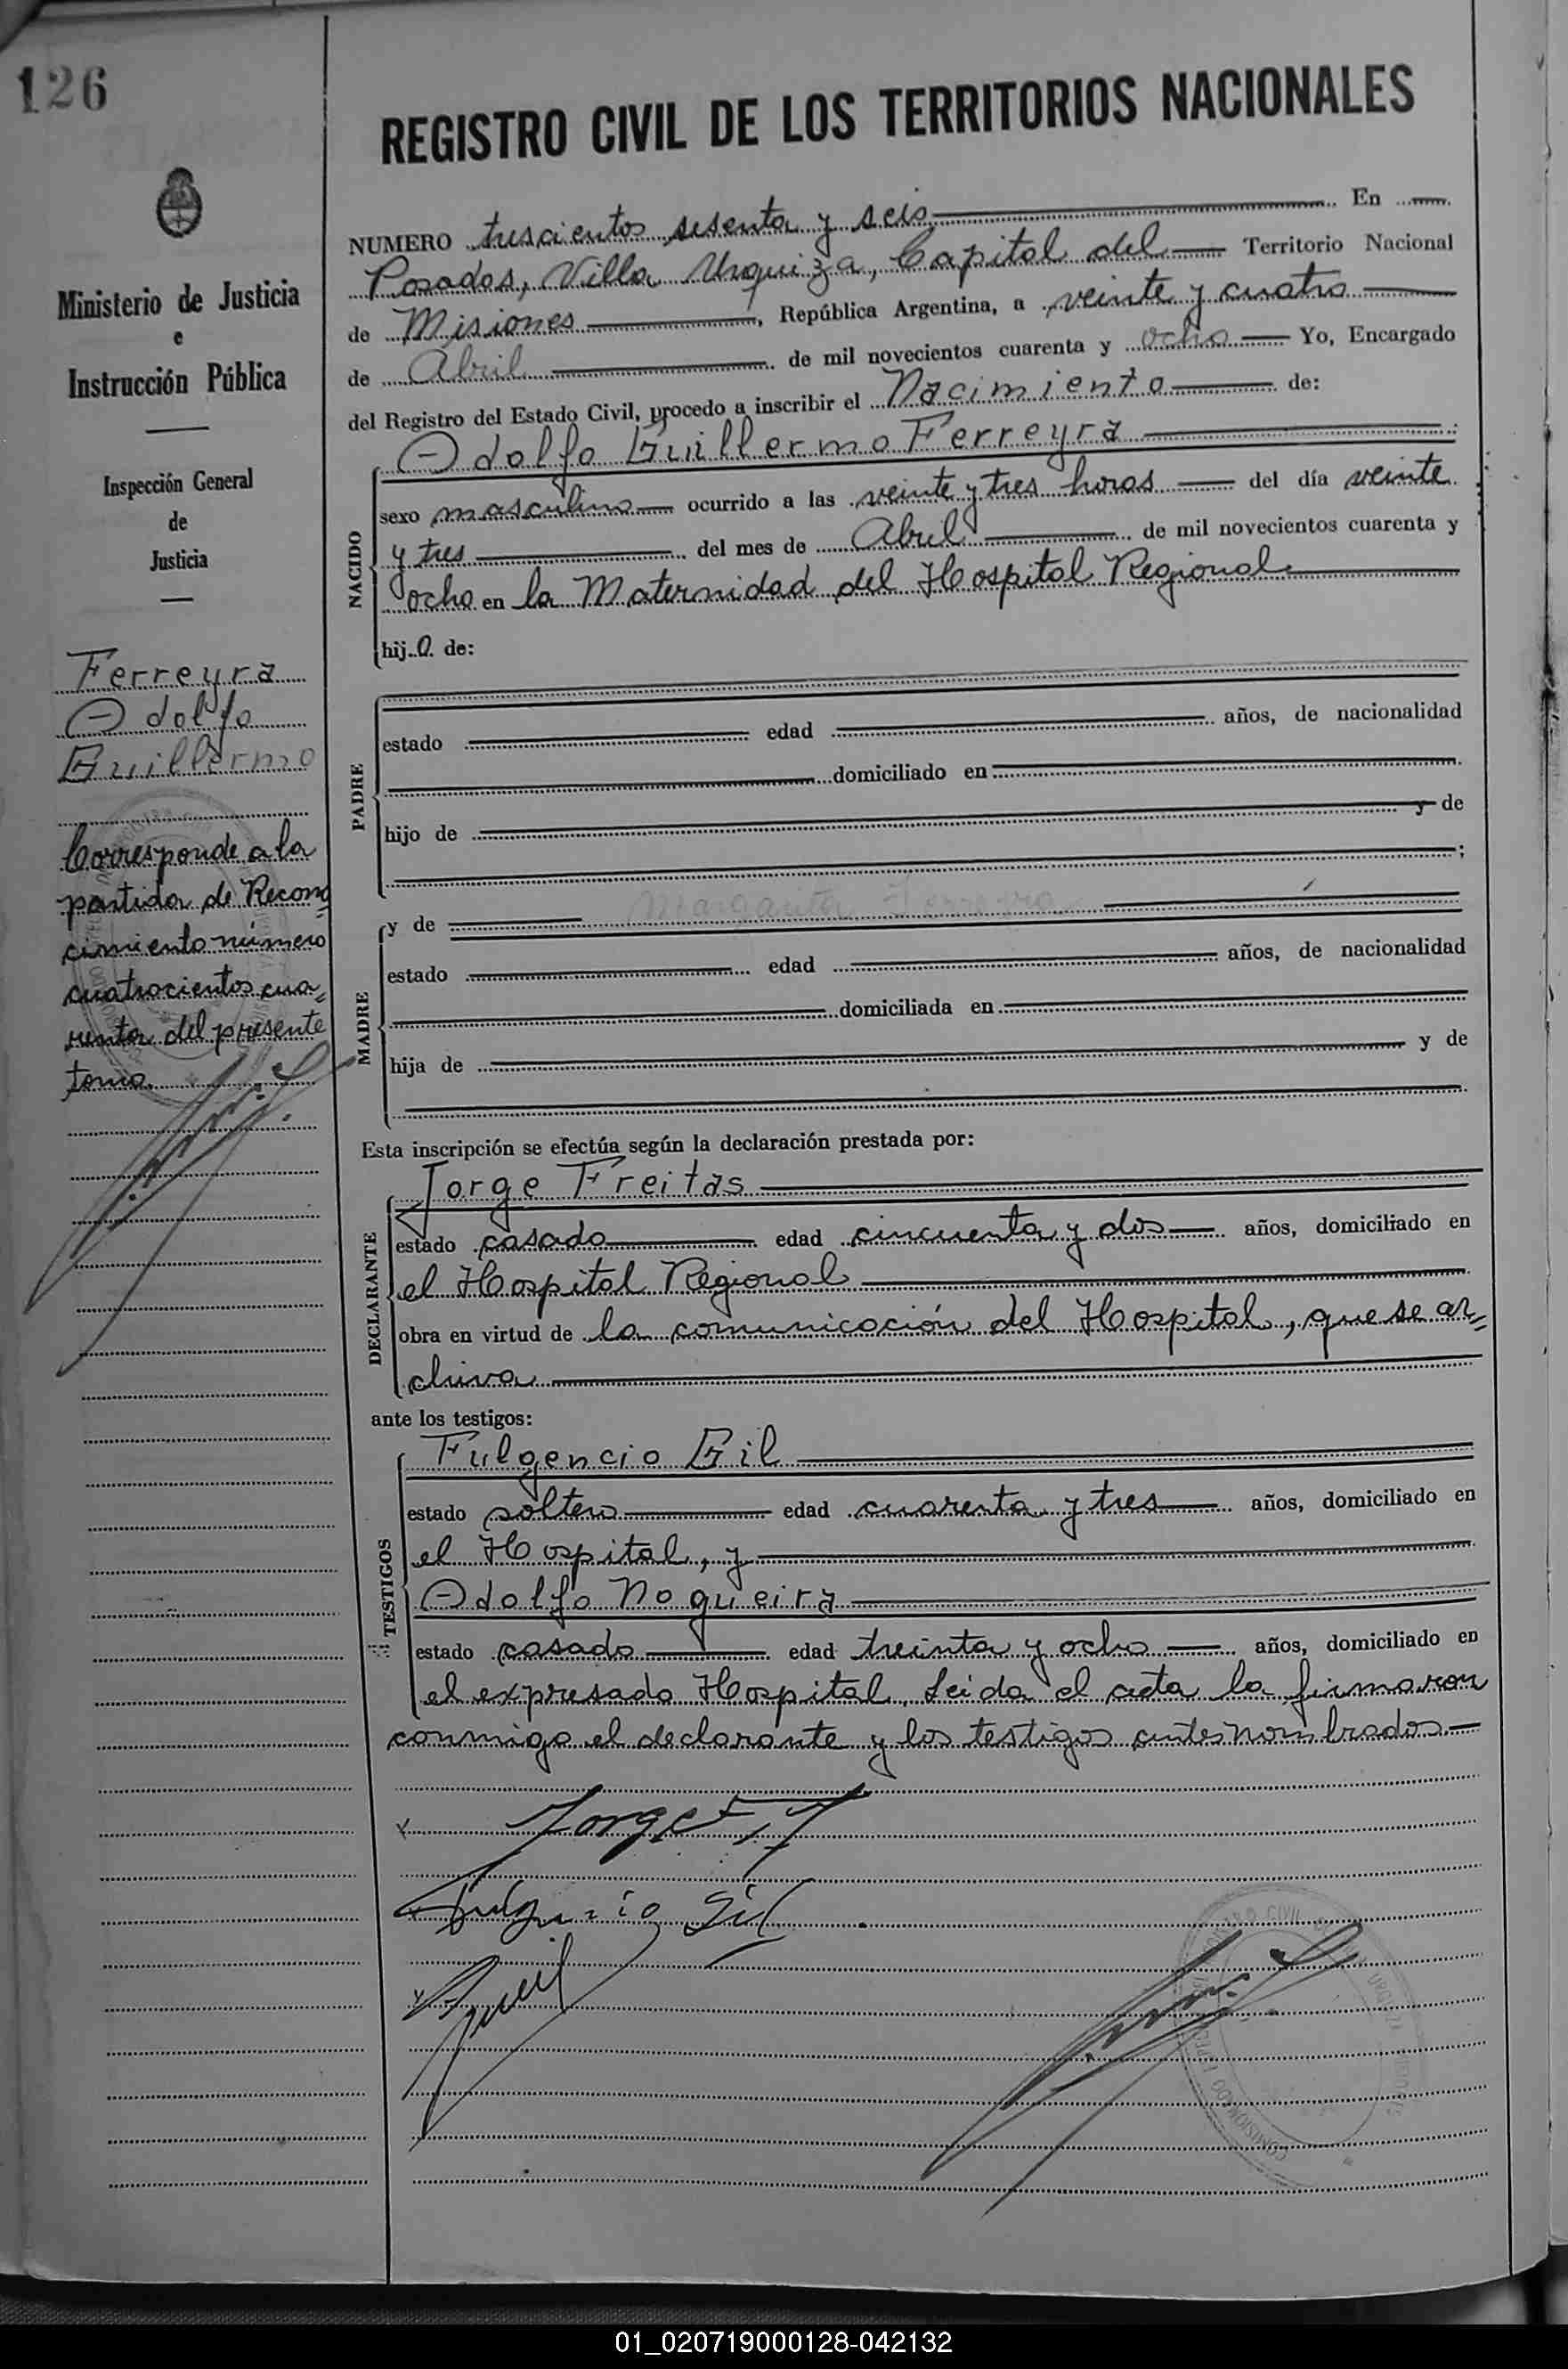 126
REGISTRO CIVIL DE LOS TERRITORIOS NACIONALES
Ministerio de Justicia
e
Instrucción Pública
Inspección General
de
Justicia
Ferreyra
Adolfo
Guillermo
Corresponde a la
partida de Recono
cimiento número
cuatrocientos cua=
renta del presente
tomo.
NUMERO trescientos sesenta y seis En
Posadas, Villa Urquiza, Capital del Territorio Nacional
de Misiones, República Argentina, a veinte y cuatro
de Abril de mil novecientos cuarenta y ocho Yo, Encargado
del Registro del Estado Civil, procedo a inscribir el Nacimiento de:
Adolfo Guillermo Ferreyra
NACIDO
sexo masculino ocurrido a las veinte y tres horas del día veinte
y tres del mes de Abril de mil novecientos cuarenta y
ocho en la Maternidad del Hospital Regional
hijo de:
PADRE
estado edad años, de nacionalidad
domiciliado en
hijo de y de
;
MADRE
y de Margarita Ferreyra
estado edad años, de nacionalidad
domiciliada en
hija de y de
Esta inscripción se efectúa según la declaración prestada por:
DECLARANTE
Jorge Freitas
estado casado edad cincuenta y dos años, domiciliado en
el Hospital Regional
obra en virtud de la comunicación del Hospital, que se ar=
chiva
ante los testigos:
TESTIGOS
Fulgencio Gil
estado soltero edad cuarenta y tres años, domiciliado en
el Hospital, y
Adolfo Nogueira
estado casado edad treinta y ocho años, domiciliado en
el expresado Hospital. Leida el acta la firmaron
conmigo el declarante y los testigos antes nombrados
Jorge F
Fulgencio Gil
01_020719000128-042132